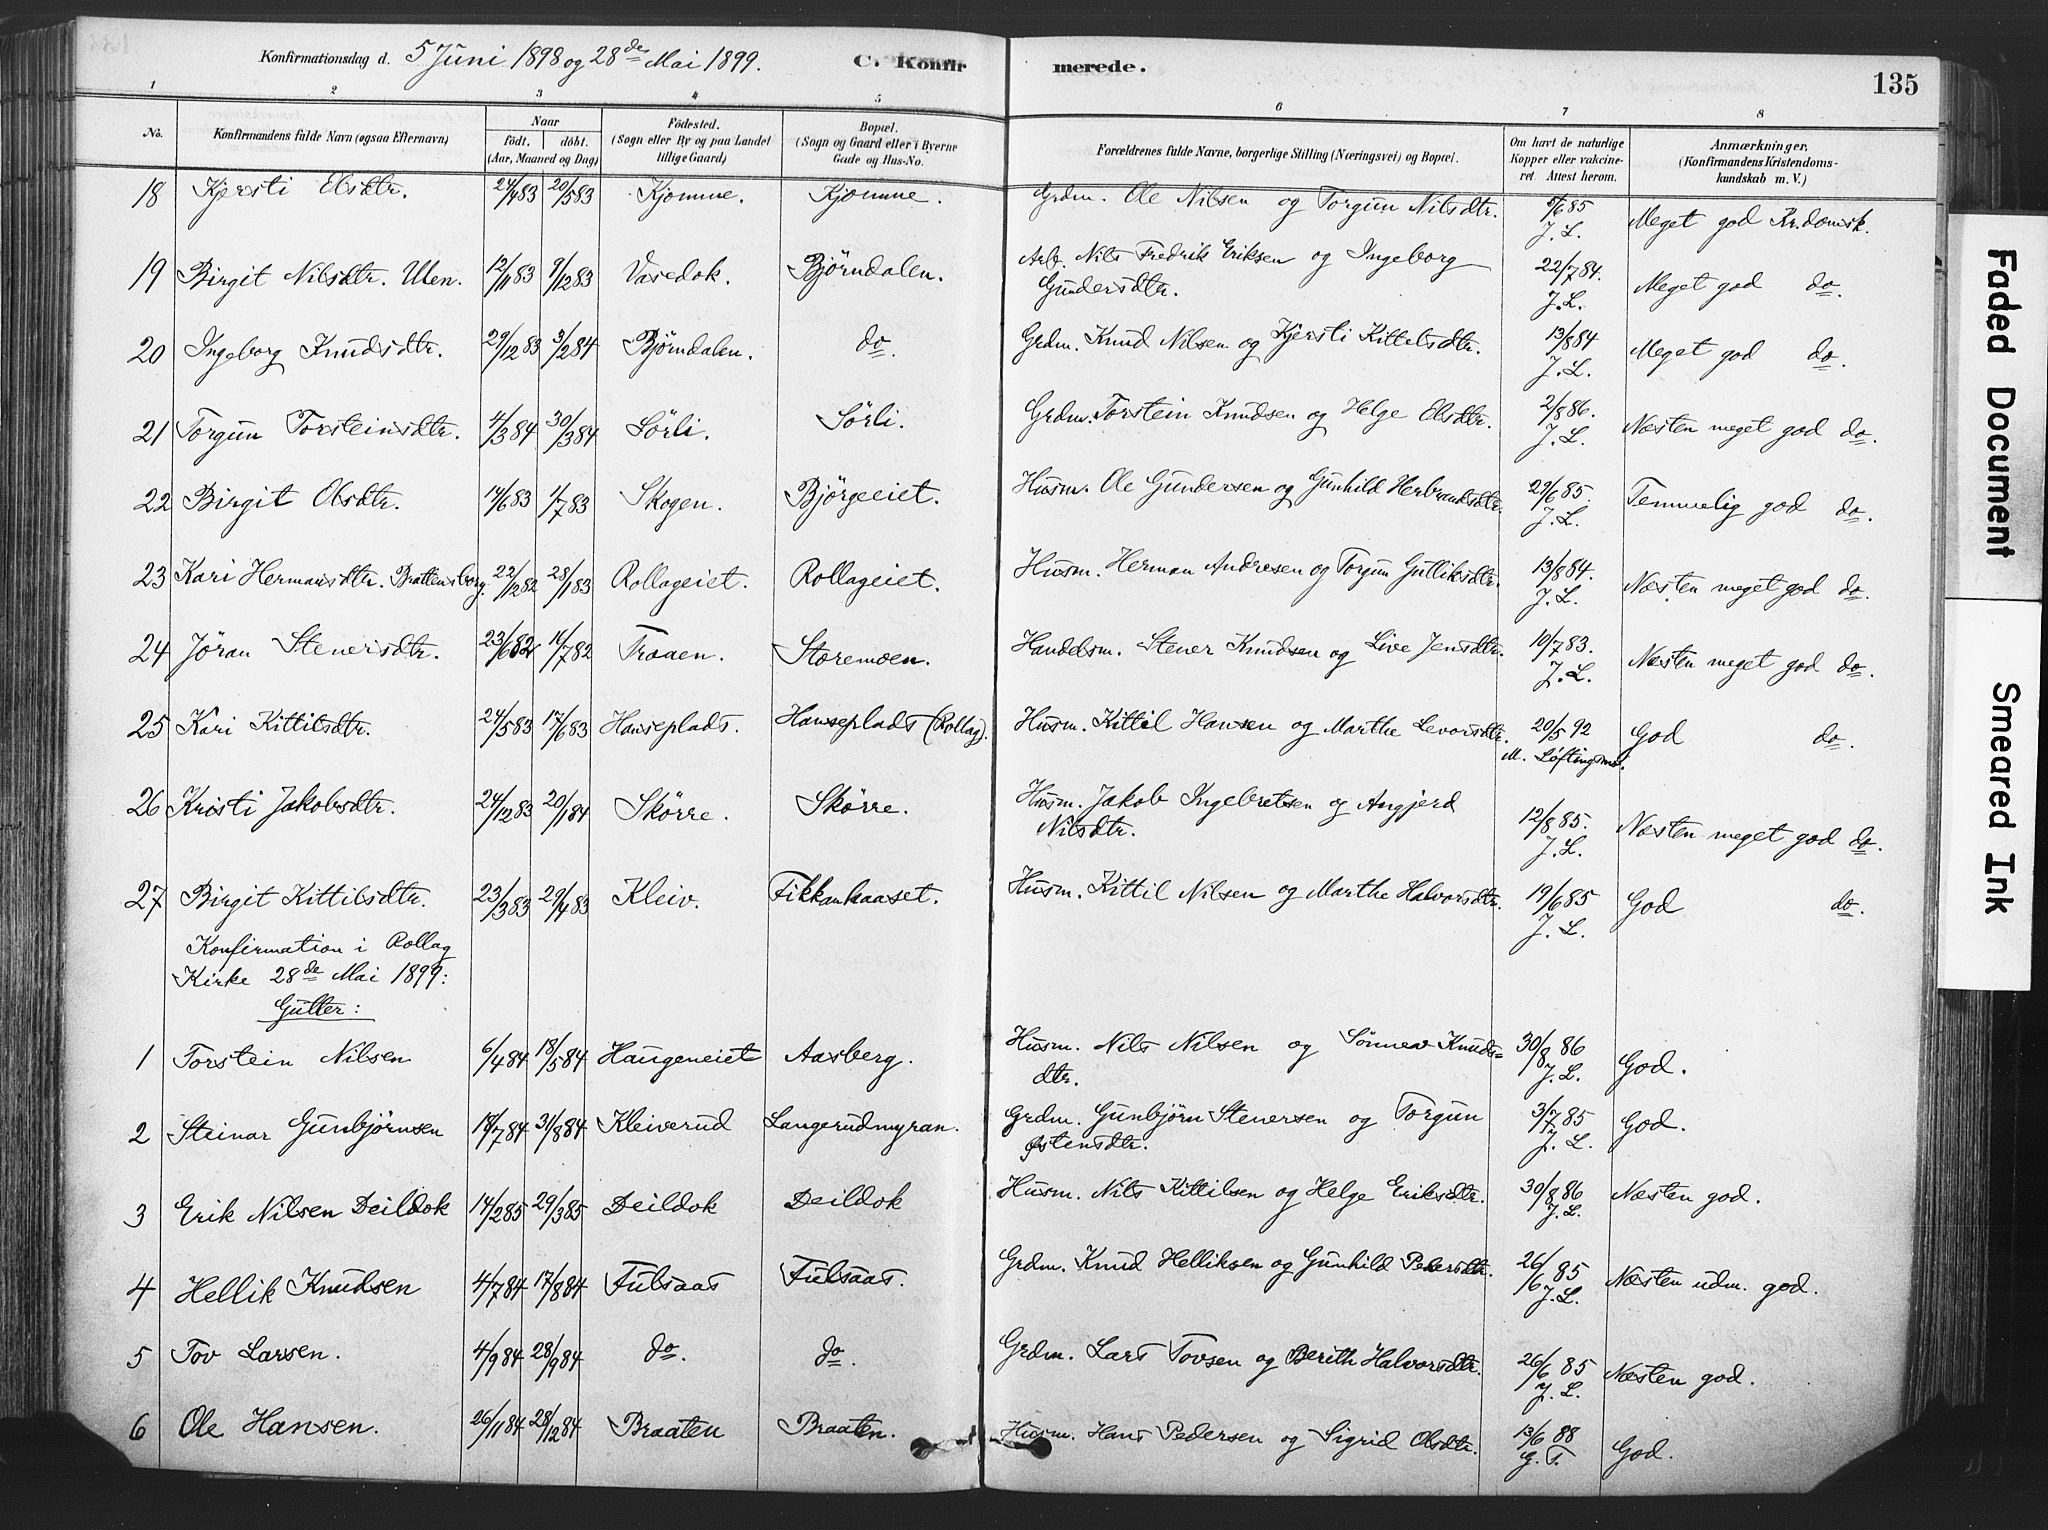 Konfirmationsdag d. 5 Juni 1898 og 28de Mai 1899. C. Konfirmerede. 135
1 2 3 4 5 6 7 8
No. Konfirmandens fulde Navn (ogsaa Efternavn) Naar födt. döbt. (Aar, Maaned og Dag) Födested. (Sogn eller By og paa Landet tillige Gaard) Bopæl. (Sogn og Gaard eller i Byerne Gade og Hus-No. Forældrenes fulde Navne, borgerlige Stilling (Næringsvei) og Bopæl. Om havt de naturlige Kopper eller vakcineret. Attest herom. Anmærkninger. (Konfirmandens Kristendomskundskab m. V.)
18 Kjersti Olsdtr. 24/4 83 20/5 83 Kjomme. Kjomme. Grdm. Ole Nilsen og Torgun Nilsdtr. 5/6 85 J. L. Meget god Kr.domsk.
19 Birgit Nilsdtr. Ulen. 12/11 83 9/12 83 Vasedok. Björndalen. Arb. Nils Fredrik Eriksen og Ingeborg Gundersdtr. 22/7 84. J. L. Meget god do.
20 Ingeborg Knudsdtr. 29/12 83 3/2 84 Björndalen. do. Grdm. Knud Nilsen og Kjersti Kittelsdtr. 13/8 84 J. L. Meget god do.
21 Torgun Torsteinsdtr. 4/3 84 30/3 84 Sörli. Sörli. Grdm. Torstein Knudsen og Helge Olsdtr. 2/8 86. J. L. Næsten meget god do.
22 Birgit Olsdtr. 14/6 83 1/7 83 Skogen. Björgeeiet. Husm. Ole Gundersen og Gunhild Herbrandsdtr. 29/6 85. J. L. Temmelig god do.
23 Kari Hermansdtr. Brattensborg. 22/12 82 28/1 83 Rollageiet. Rollageiet. Husm. Herman Andresen og Torgun Gulliksdtr. 13/8 84. J. L. Næsten meget god do.
24 Jöran Stenersdtr. 23/6 82 16/7 82 Traaen. Storemoen. Handelsm. Stener Knudsen og Live Jensdtr. 10/7 83. J. L. Næsten meget god do.
25 Kari Kittilsdtr. 24/5 83 17/6 83 Hanseplads. Hanseplads (Rollag). Husm. Kittil Hansen og Marthe Levorsdtr. 20/5 92 M. Løftingsmo. God do.
26 Kristi Jakobsdtr. 24/12 83 20/1 84 Skörre. Skörre. Husm. Jakob Ingebretsen og Angjerd Nilsdtr. 12/8 85. J. L. Næsten meget god do.
27 Birgit Kittilsdtr. 23/3 83 29/4 83 Kleiv. Fikkanhaaset. Husm. Kittil Nilsen og Marthe Halvorsdtr. 19/6 85 J. L. God do.
Konfirmation i Rollag
Kirke 28de Mai 1899:
Gutter:
1 Torstein Nilsen 6/4 84 18/5 84 Haugeneiet Aasberg. Husm. Nils Nilsen og Sönnev Knudsdtr. 30/8 86 J. L. God.
2 Steinar Gunbjörnsen 18/7 84 31/8 84 Kleiverud Langerudmyran. Grdm. Gunbjörn Stenersen og Torgun Østensdtr. 3/7 85 J. L. God.
3 Erik Nilsen Deildok 14/2 85 29/3 85 Deildok Deildok Husm. Nils Kittilsen og Helge Eriksdtr. 30/8 86 J. L. Næsten god.
4 Hellik Knudsen 4/7 84 17/8 84 Fulsaas Fulsaas. Grdm. Knud Helliksen og Gunhild Pedersdtr. 26/6 85 J. L. Næsten udm. god.
5 Tov Larsen. 4/9 84 28/9 84 do. do. Grdm. Lars Tovsen og Berith Halvorsdtr. 26/6 85 J. L. Næsten god.
6 Ole Hansen. 26/11 84 28/12 84 Braaten Braaten. Husm. Hans Pedersen og Sigrid Olsdtr. 13/6 88 G. T. God.
Faded Document
Smeared Ink